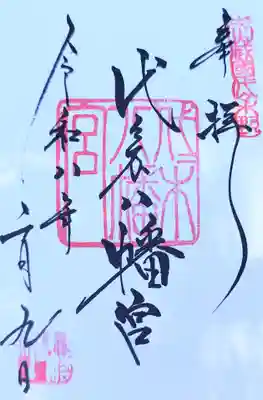 奉拝
代々木八幡宮
代々木
八幡
宮
令和八年
二月九日